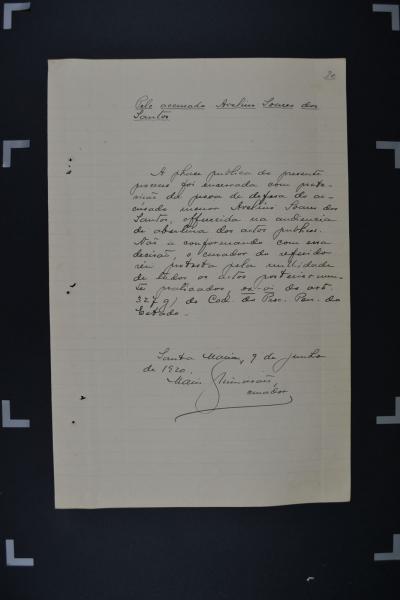 20
Pelo accusado Avelino Soares dos
Santos
A phase publica do presente
processo foi encerrada com prete-
rição da prova de defesa do ac-
cusado menor Avelino Soares dos
Santos, offerecida na audiencia
de abertura dos actos publicos.
Não se conformando com essa
decisão, o curador do referido
réu protesta pela nullidade
de todos os actos posteriormen-
te praticados, do art.
327 g) do Cod. do Proc. Pen. do
Estado.
Santa Maria, 9 de junho
de 1920.
curador